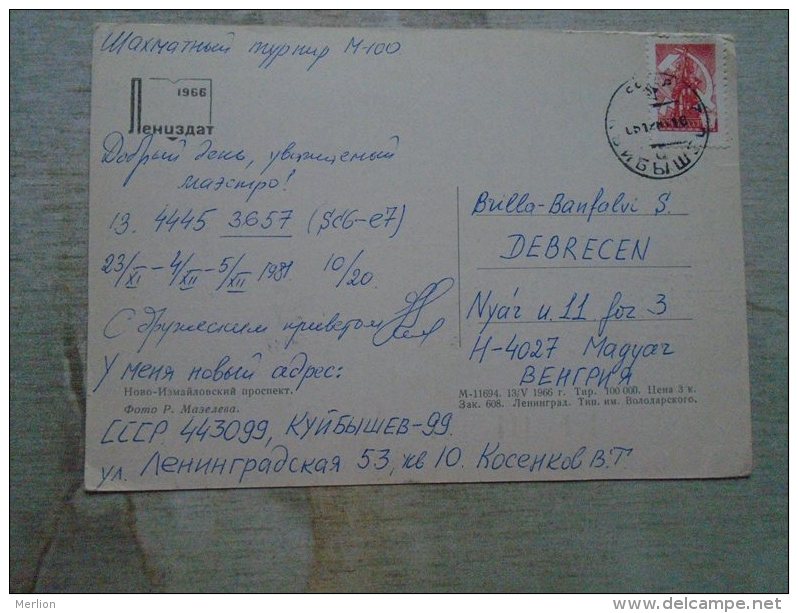 Шахматный турнир М-100
1966
Лениздат
Добрый день, уважаемый
маэстро!
13. 4445 3657 (Sc6-e7)
23/XI - 4/XII - 5/XII 1981 10/20
С дружеским приветом
У меня новый адрес:
Ново-Измайловский проспект.
Фото Р. Мазелева.
СССР 443099, КУЙБЫШЕВ-99.
ул. Ленинградская 53, кв 10. Косенков В.Т
Brilla-Banfalvi S.
DEBRECEN
Nyár u. 11. fsz 3
H-4027 Magyar
ВЕНГРИЯ
М-11694. 13/V 1966 г. Тир. 100 000. Цена 3 к.
Зак. 608. Ленинград. Тип. им. Володарского.
Merlion
www.delcampe.net